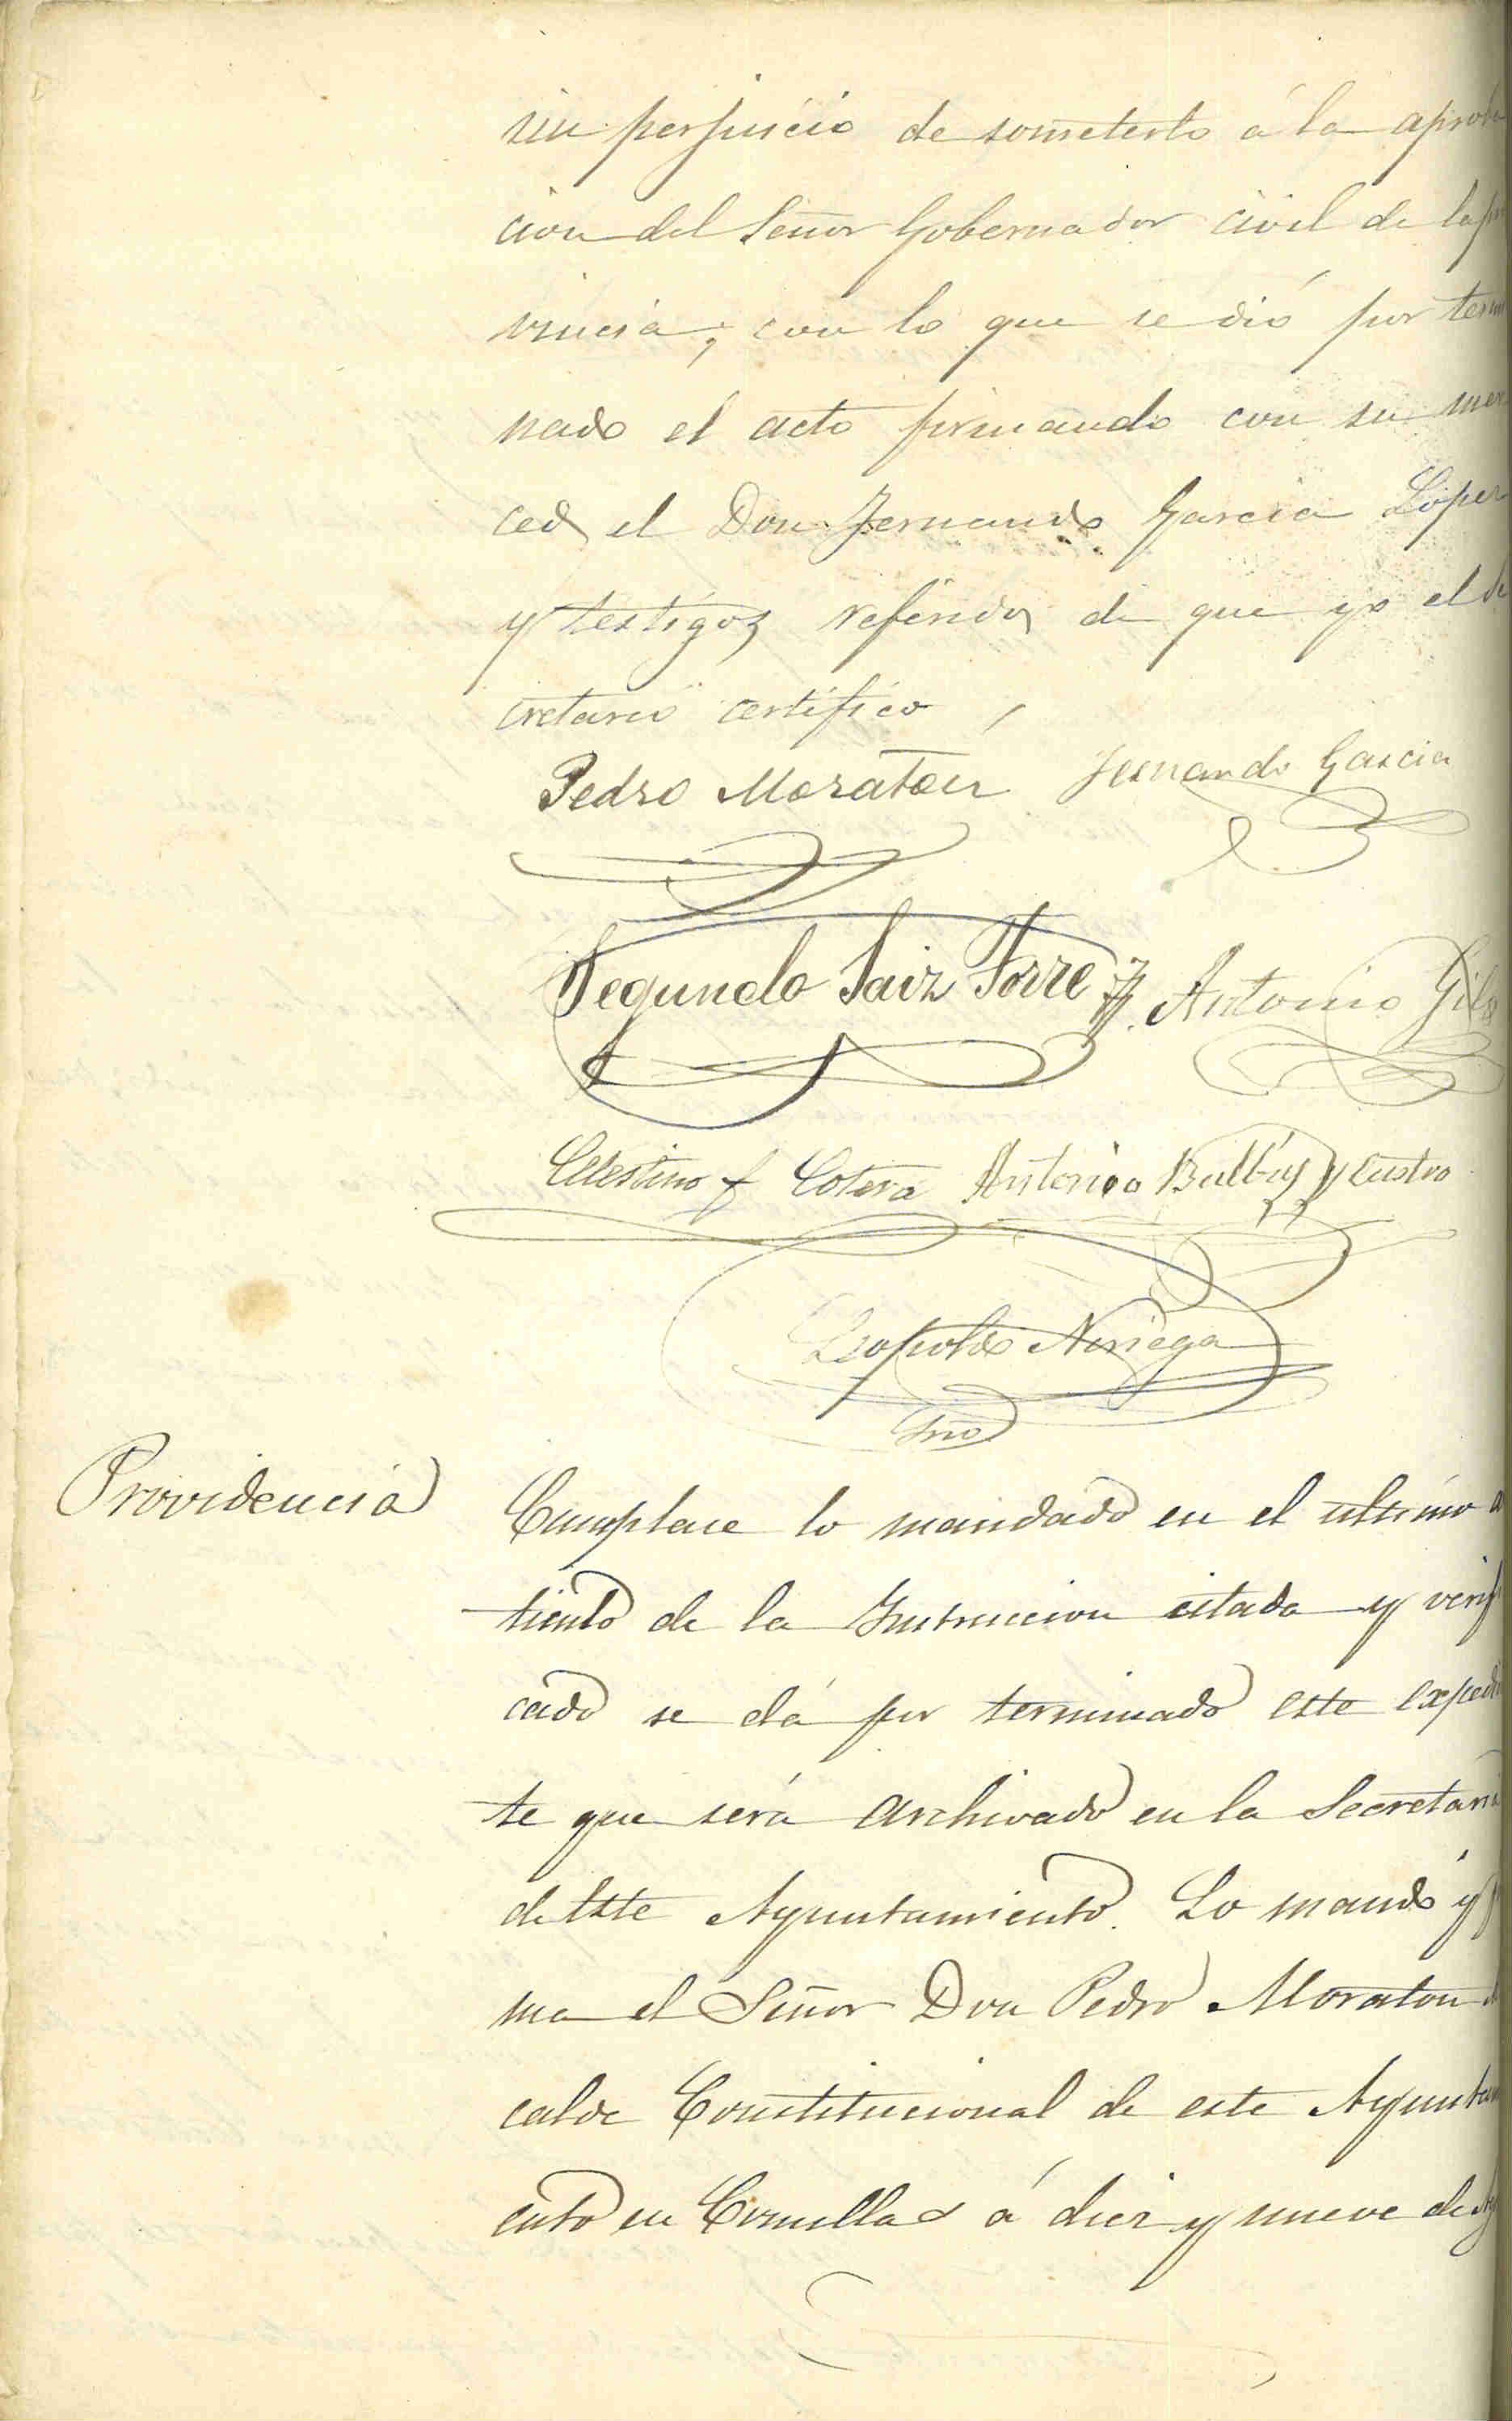 sin perjuicio de someterlo á la aproba
cion del Señor Gobernador civil de la pro
vincia; con lo que se dió por termi
nado el acto firmando con su mer
ced el Don Fernando Garcia Lopez
y testigos referidos de que yo el Se
cretario certifico
Pedro Moratón Fernando Garcia
Segundo Saiz Torre Antonio Gil
Celestino F Cotera Antonio Balbás y Castro
Leopoldo Noriega
Srio
Providencia
Cumplase lo mandado en el ultimo a
ticulo de la Instruccion citada y verifi
cado se dá por terminado este expedien
te que será archivado en la Secretaria
de este Ayuntamiento. Lo mandó y fir
ma el Señor Don Pedro Moraton Al
calde Constitucional de este Ayuntami
ento en Comillas á diez y nueve de Ag